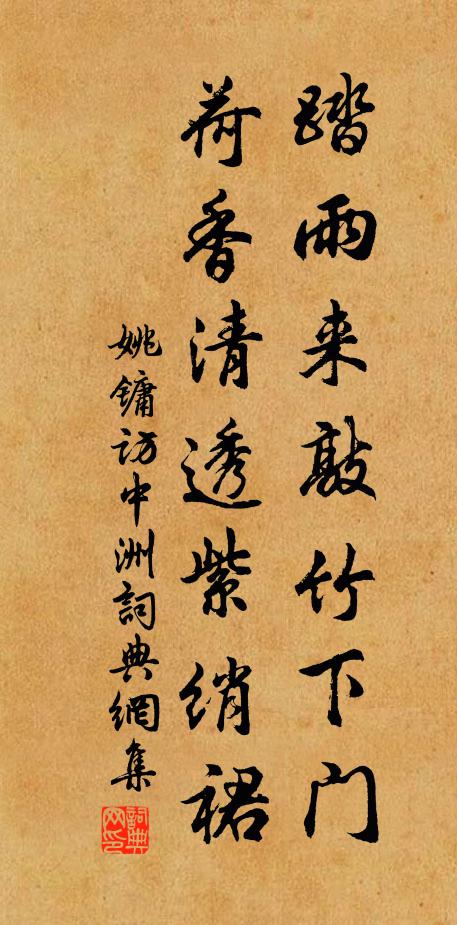 踏雨来敲竹下门
荷香清透紫绡裙
姚鏞访中洲詞典網集
詞典网印